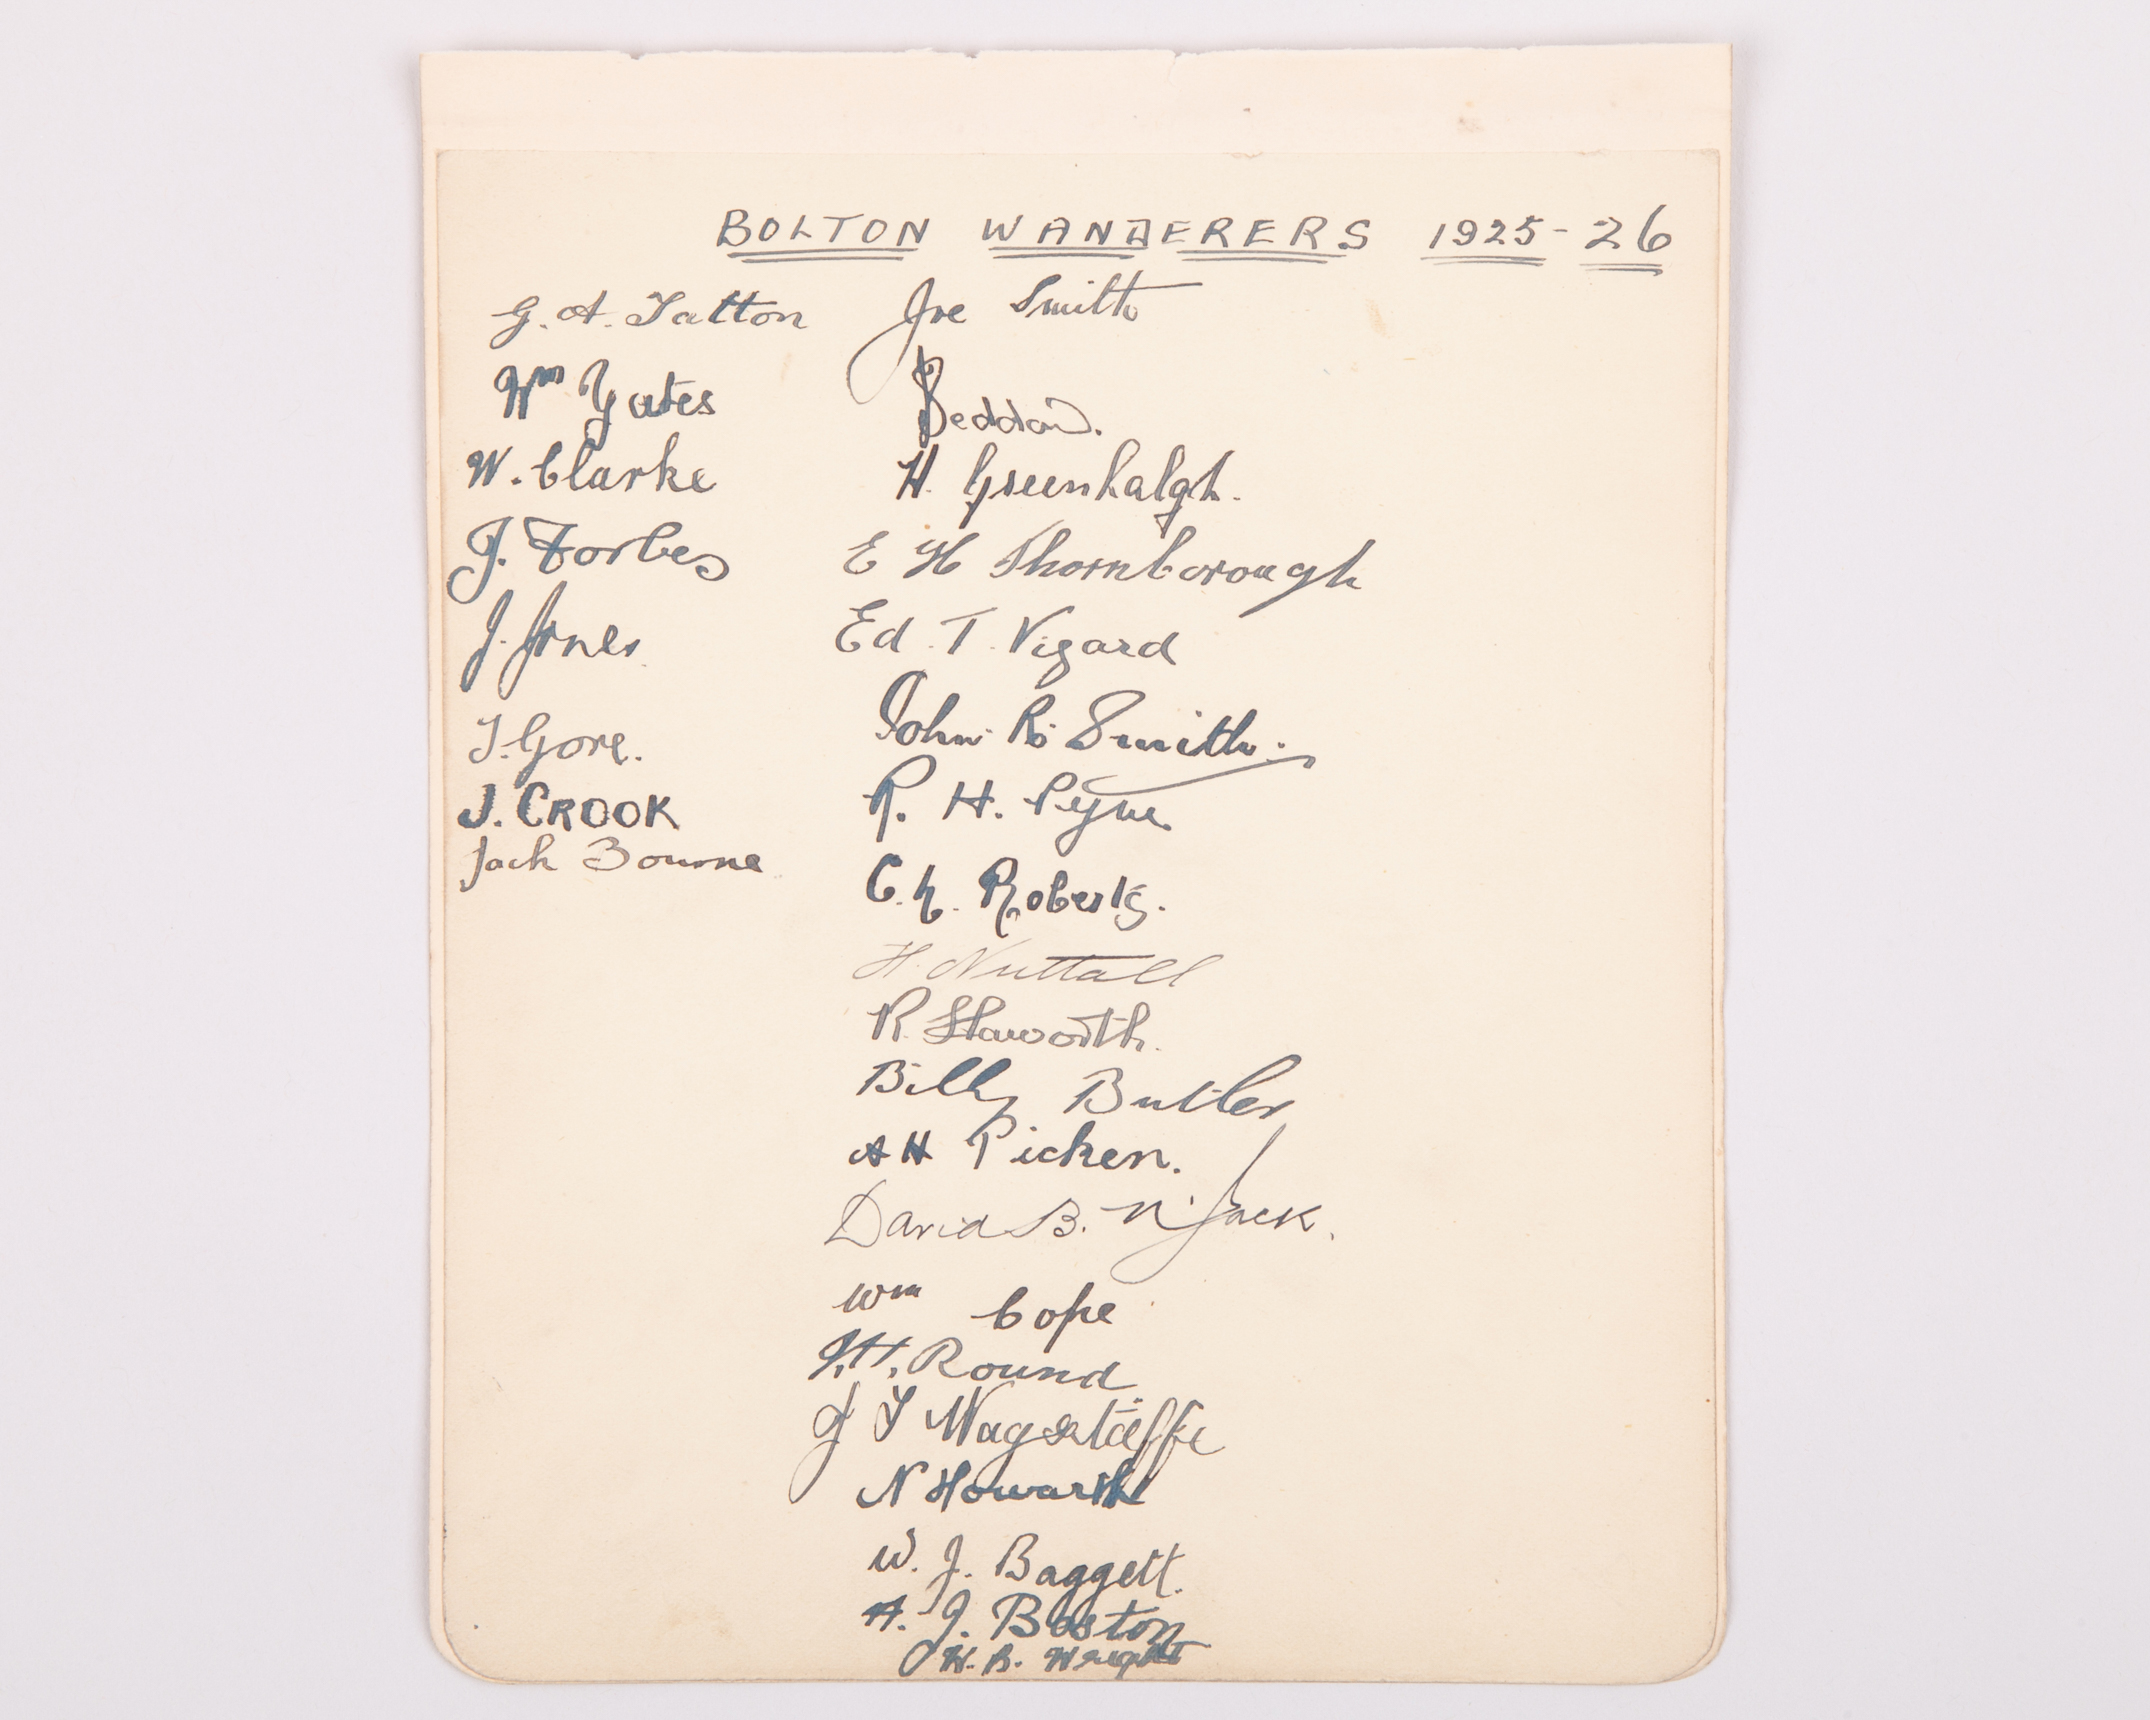 BOLTON WANDERERS 1925-26
G. A. Tatton
Wm Yates
W. Clarke
J. Forbes
J. Jones
T. Gore.
J. CROOK
Jack Bourne
Joe Smith
Seddon.
H. Greenhalgh.
E H Thornborough
Ed. T. Vizard
John R. Smith.
R. H. Pym
C. L. Roberts.
H. Nuttall
R. Haworth.
Billy Butler
A H Picken.
David B. N. Jack.
Wm Cope
J. H. Round
J T Wagstaffe
N Howarth
W. J. Baggett.
H. J. Baston
W. R. Wright